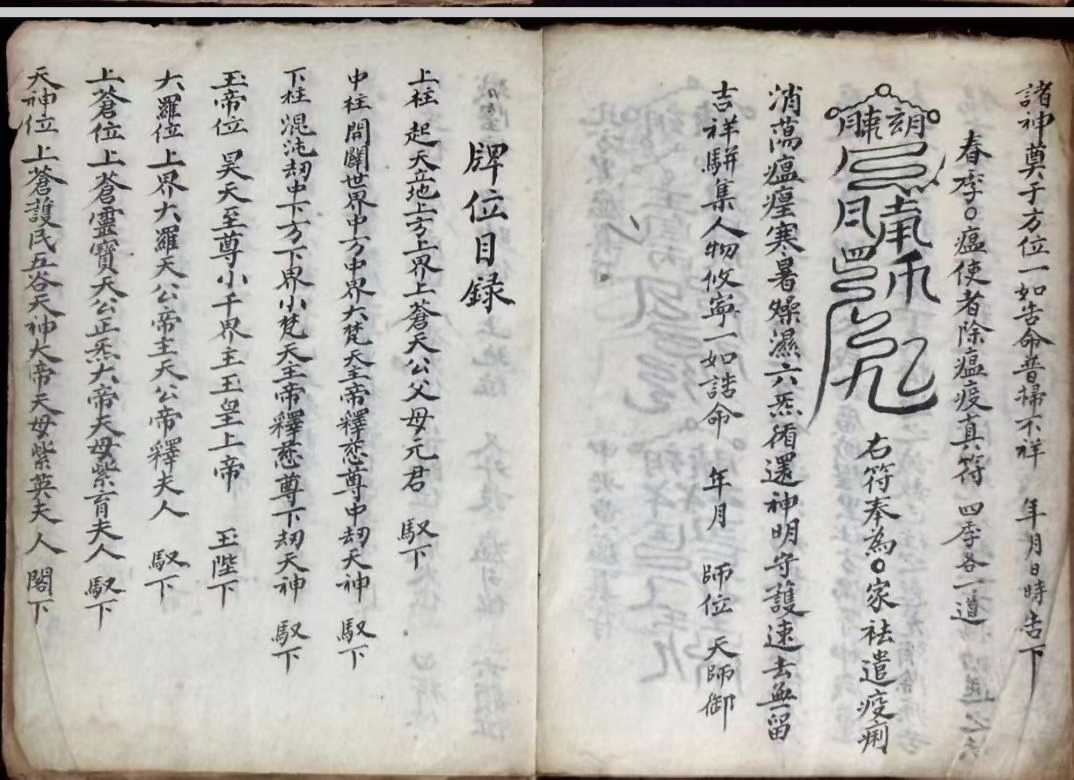 諸神奠于方位一如告命普掃不祥 年月日時告下
春季〇瘟使者除瘟疫真符 四季各一道
右符奉為〇家祛遣疫痢
消蕩瘟㾮寒暑燥濕六炁循還神明守護速去無留
吉祥駢集人物攸寧一如誥命 年月 師位 天師御
牌位目録
上柱 起天立地上方上界上蒼天公父母元君 馭下
中柱 開闢世界中方中界大梵天主帝釋慈尊中刼天神 馭下
下柱 混沌刼中下方下界小梵天主帝釋慈尊下刼天神 馭下
玉帝位 昊天至尊小千界主玉皇上帝 玉陛下
大羅位上界大羅天公帝主天公帝釋夫人 馭下
上蒼位上蒼靈寶天公正炁大帝天母紫育夫人 馭下
天神位上蒼護民五谷天神大帝天母紫英夫人 閣下